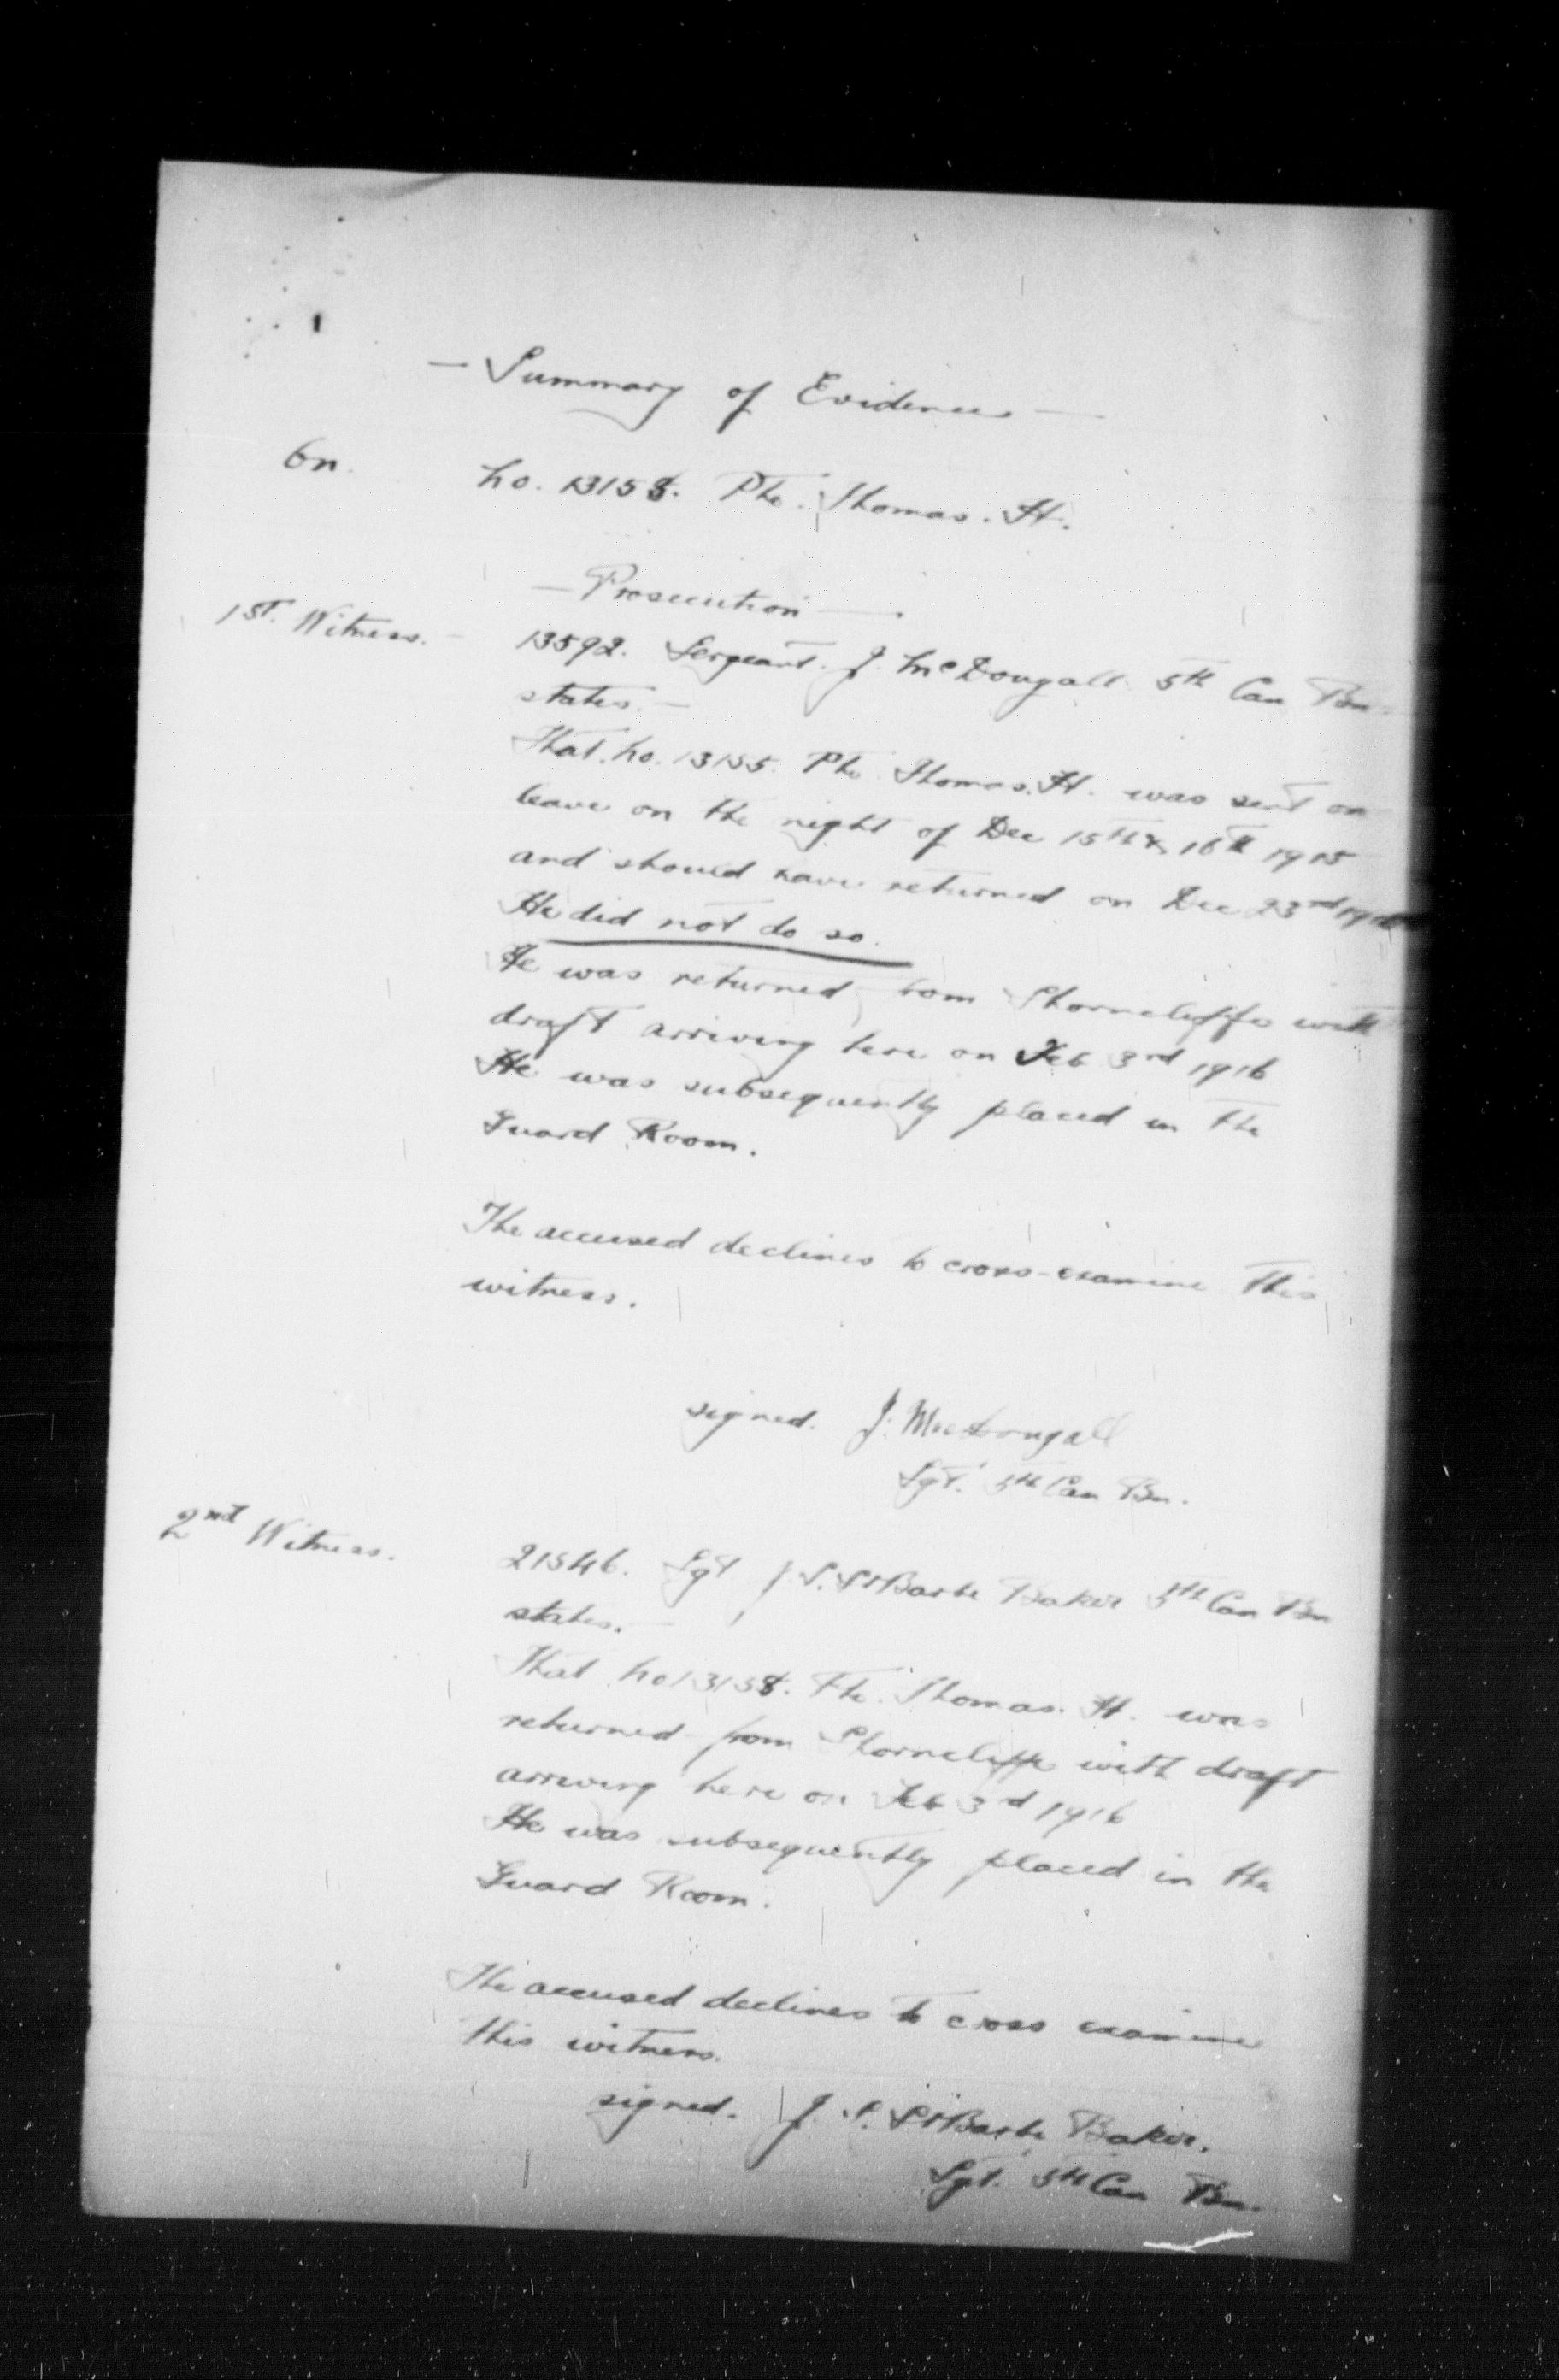 — Summary of Evidence —
On. No. 13155. Pte. Thomas. H.
— Prosecution —.
1st. Witness. — 13592. Sergeant. J. McDougall 5th Can Bn
states. —
That. No. 13155. Pte Thomas. H. was sent on
leave on the night of Dec 15th & 16th 1915
and should have returned on Dec 23rd 1915
He did not do so.
He was returned from Shorncliffe with
draft arriving here on Feb 3rd 1916
He was subsequently placed in the
Guard Room.
The accused declines to cross-examine this
witness.
signed. J. MacDougall
Sgt. 5th Can Bn.
2nd Witness. 21546. Sgt J. S. St Barbe Baker 5th Can Bn
states. —
That No 13155. Pte. Thomas. H. was
returned from Shorncliffe with draft
arriving here on Feb 3rd 1916
He was subsequently placed in the
Guard Room.
The accused declines to cross examine
this witness.
signed. J. S. St Barbe Baker.
Sgt. 5th Can Bn.